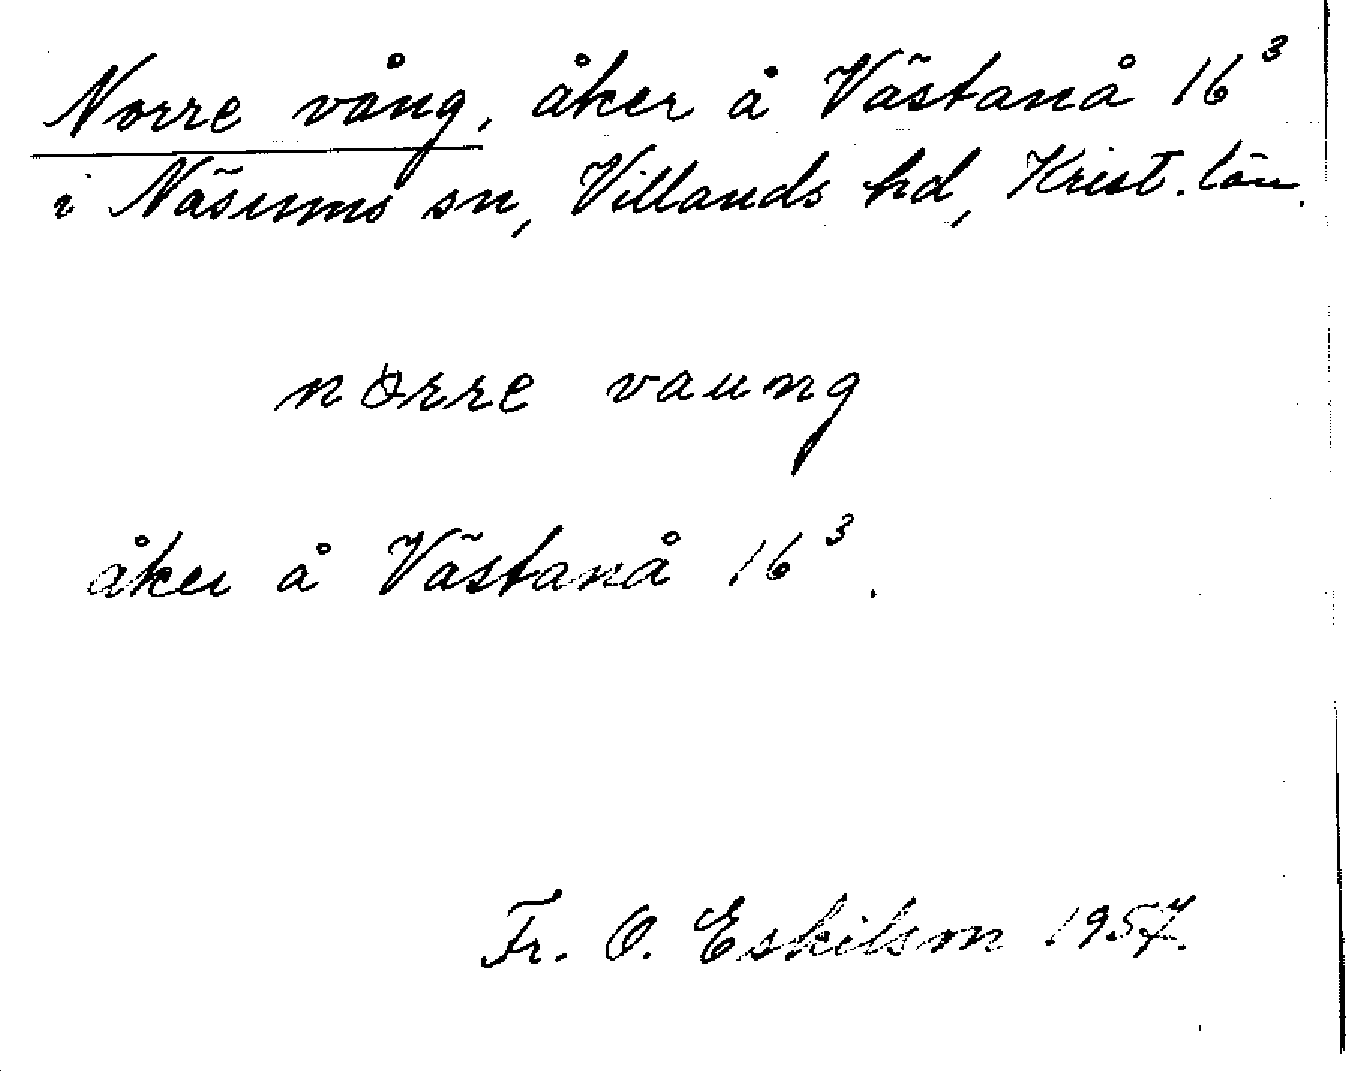 Norre vång, åker å Västanå 16³
i Näsums sn, Villands hd, Krist. län.
norre vaung
åker å Västanå 16³.
Fr. O. Eskilsson 1957.